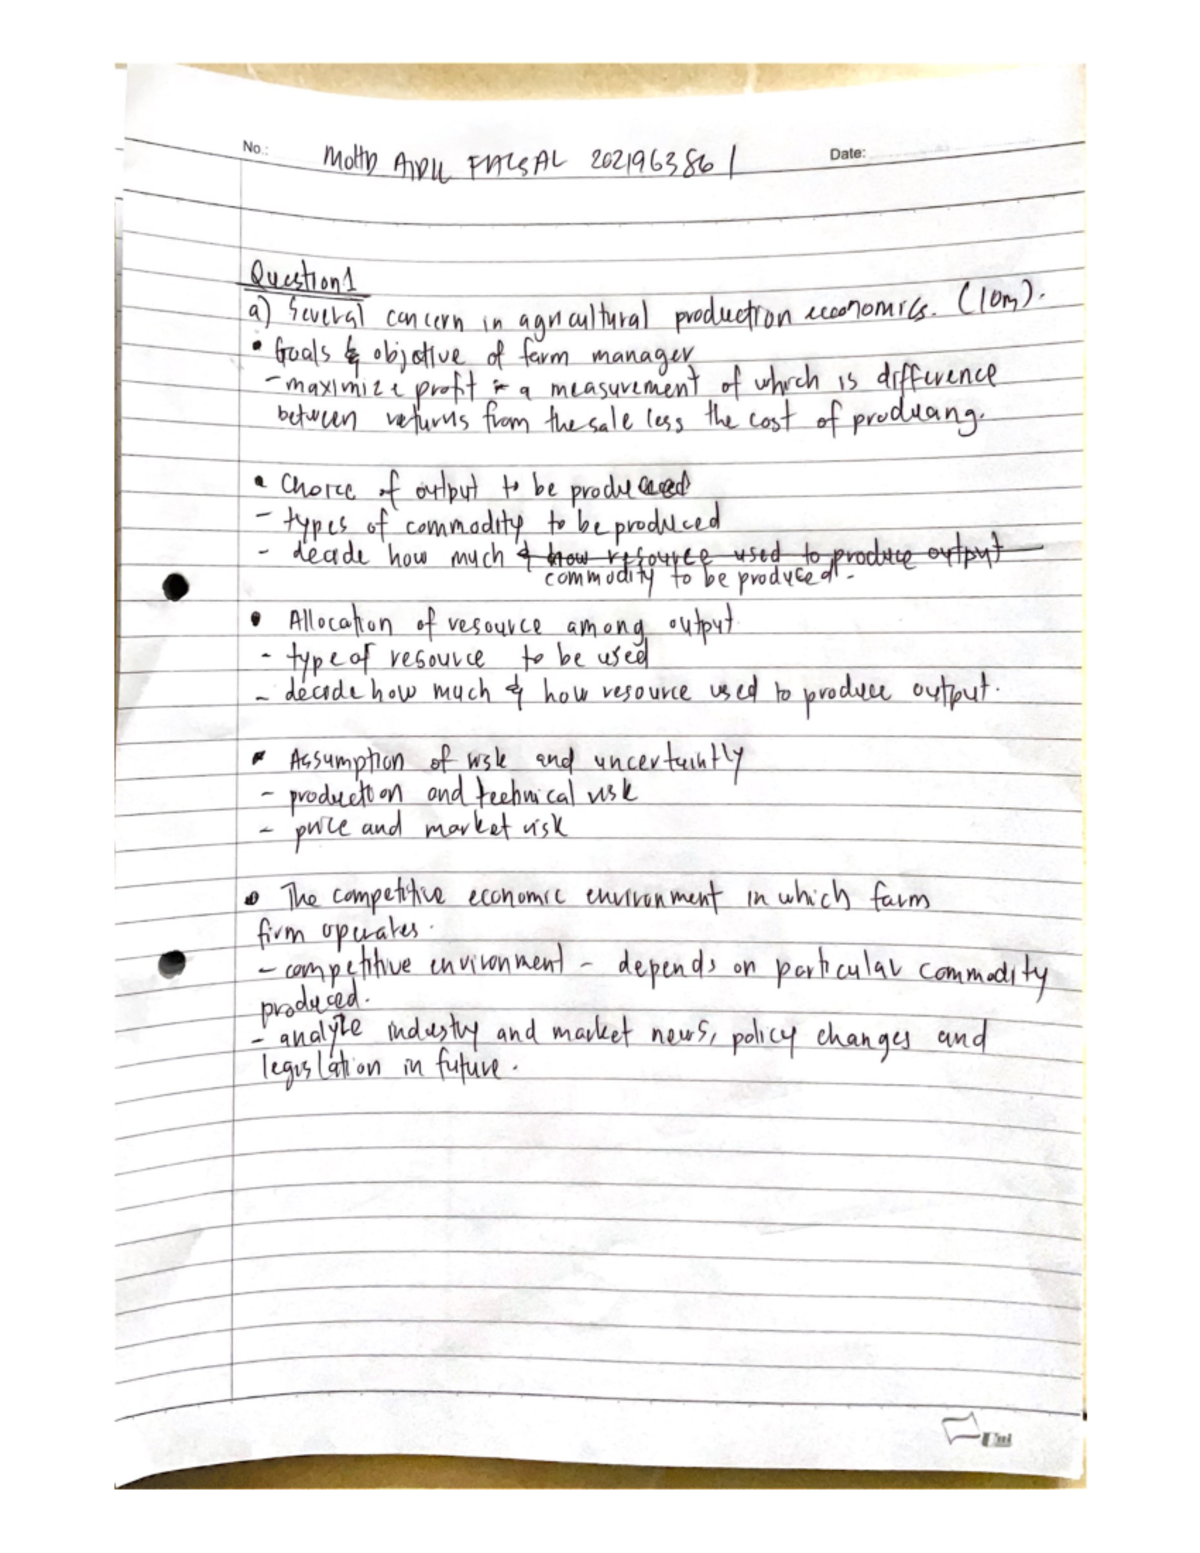 No.: MOHD AIDIL FAISAL 2021963861 Date:
Question 1
a) Several concern in agricultural production economics. (10m).
• Goals & objective of farm manager
- maximize profit a measurement of which is difference
between returns from the sale less the cost of producing.
• Choice of output to be produced
- types of commodity to be produced
- decide how much & how resource used to produce output
commodity to be produced.
• Allocation of resource among output
- type of resource to be used
- decide how much & how resource used to produce output.
• Assumption of risk and uncertaintly
- production and technical risk
- price and market risk
• The competitive economic environment in which farm
firm operates.
- competitive environment - depends on particular commodity
produced.
- analyze industry and market news, policy changes and
legislation in future.